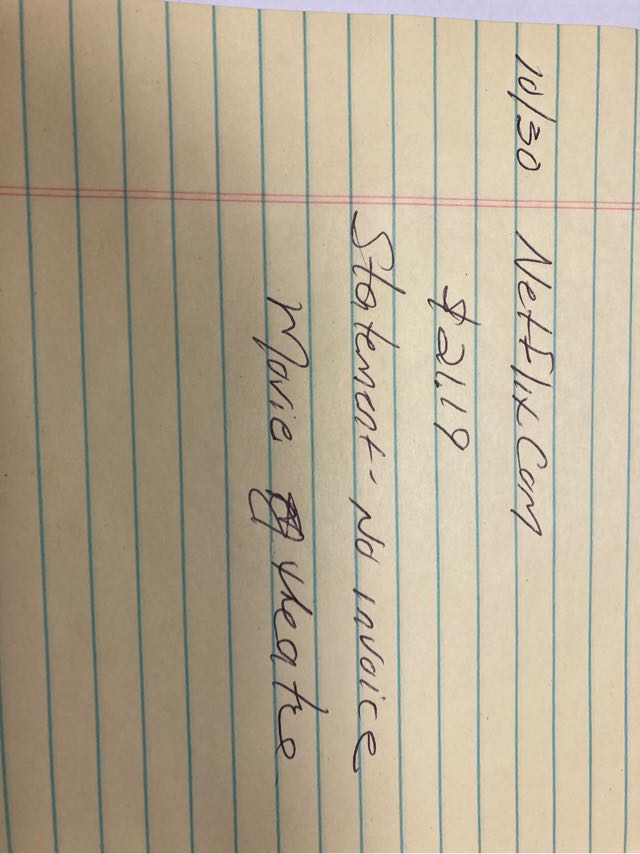 10/30 Netflix.Com
$21.19
Statement - No invoice
Movie theatre